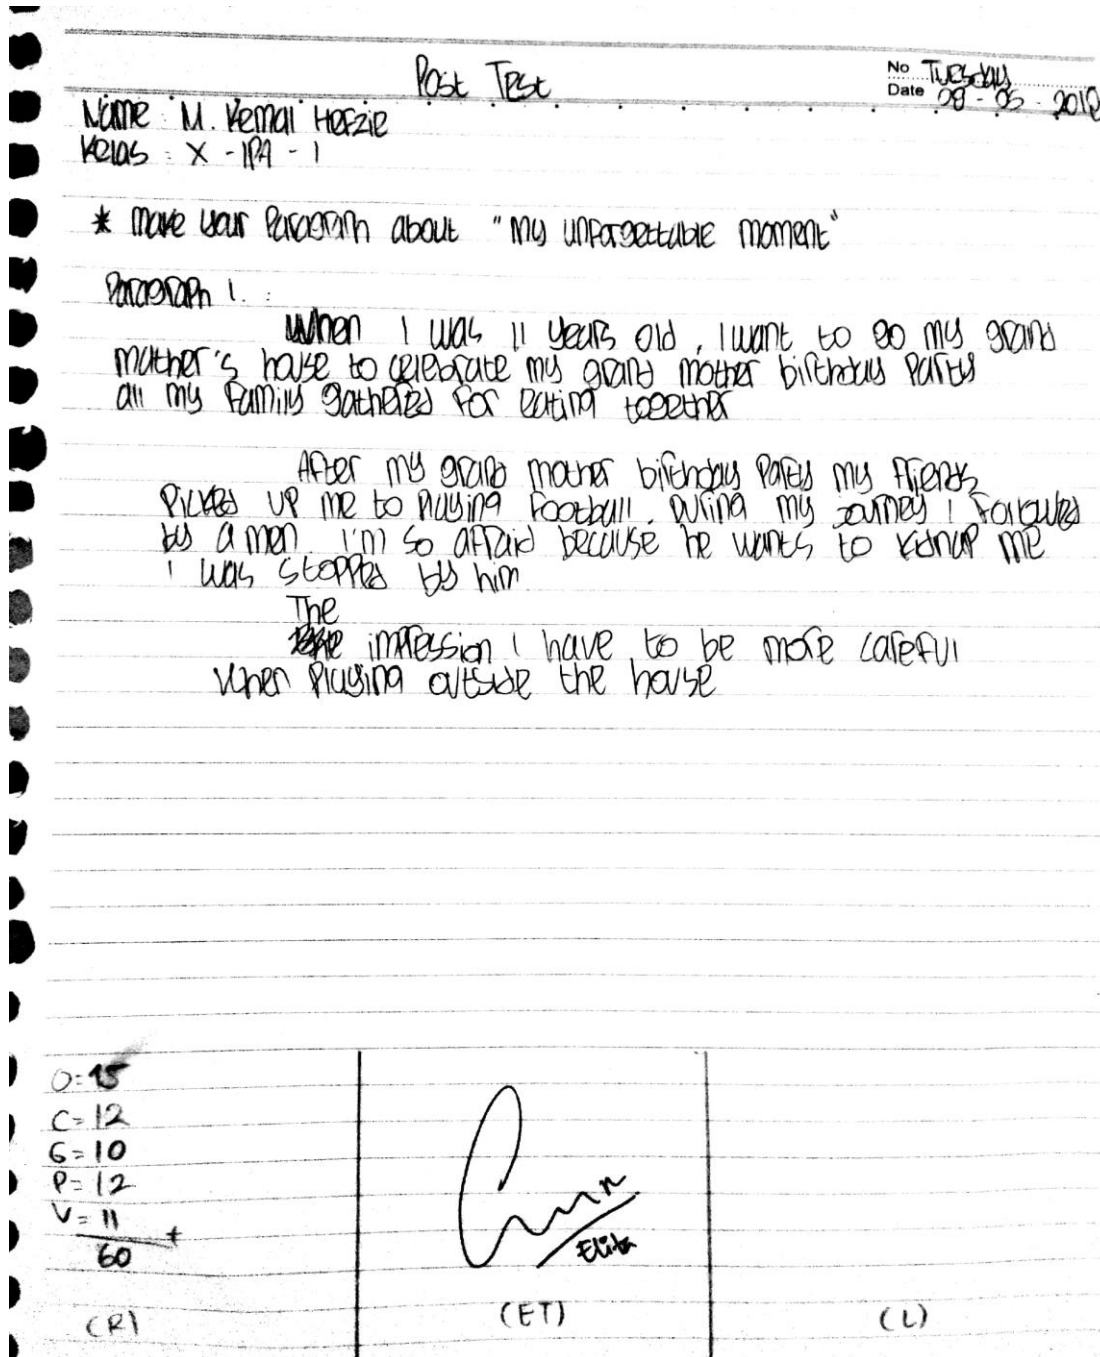 Post Test
No Tuesday
Date 28 - 05 - 2018
Name : M. Kemal Hefzie
Kelas : X - IPA - 1
* make your Paragraph about "my unforgettable moment"
Paragraph 1. :
When I was 11 years old, I want to go my grand
mother's house to celebrate my grand mother birthday Party
all my Family gathered For eating together
After my grand mother birthday Party my Friends
Picked up me to Playing Football. During my journey I Followed
by a man. I'm so afraid because he wants to kidnap me
I was stopped by him
The
impression I have to be more careful
when Playing outside the house
O = 15
C = 12
G = 10
P = 12
V = 11
+
60
Elita
(R)
(ET)
(L)